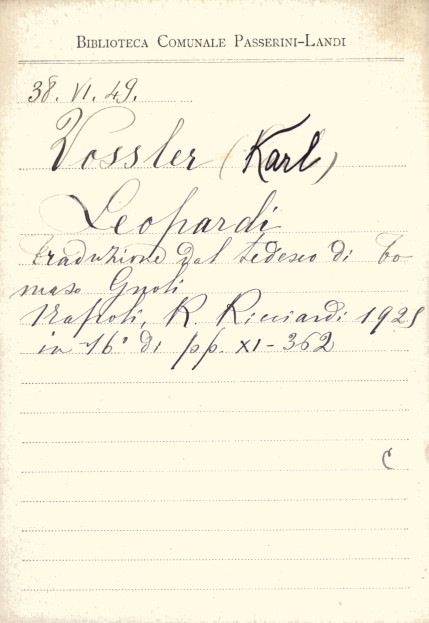 BIBLIOTECA COMUNALE PASSERINI-LANDI
38. VI. 49.
Vossler (Karl)
Leopardi
traduzione dal tedesco di To-
maso Gnoli
Napoli, R. Ricciardi 1925
in 16° di pp. XI-362
C